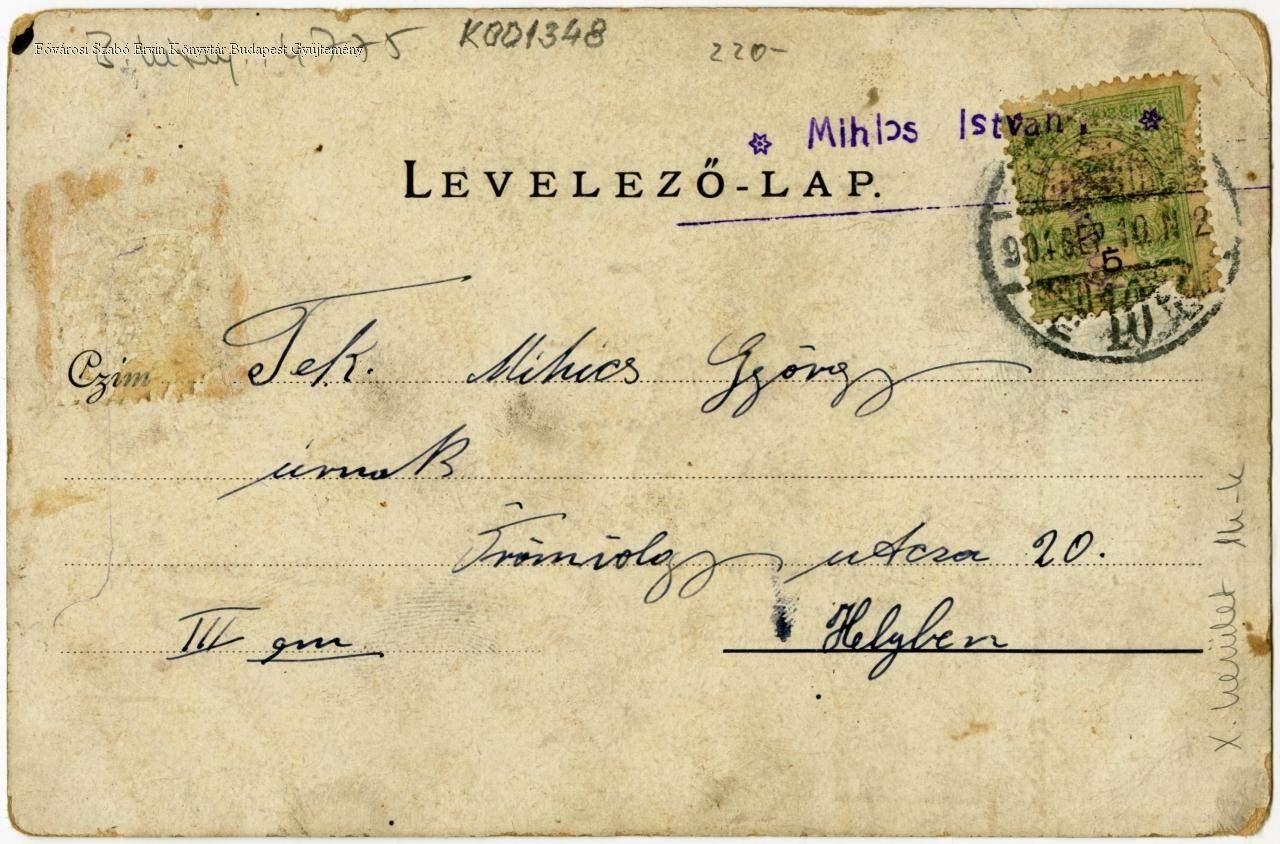 Fővárosi Szabó Ervin Könyvtár Budapest Gyűjtemény
K001348
220-
Mihlos István
LEVELEZŐ-LAP.
904 SEP. 10. N 2
5
10
Czim Tek. Mihics György
úrnak
utcza 20.
III em
Helyben
X. kerület